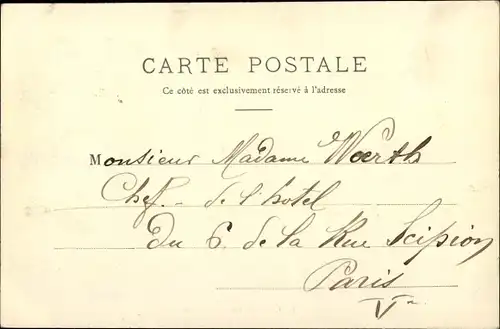 CARTE POSTALE
Ce côté est exclusivement réservé à l'adresse
Monsieur Madame Woerth
Chef. de l'hotel
Du 6. de la Rue Scipion
Paris
V